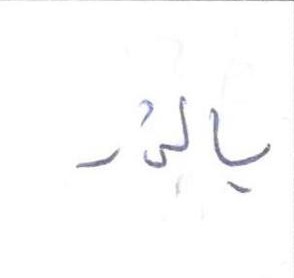 يالور